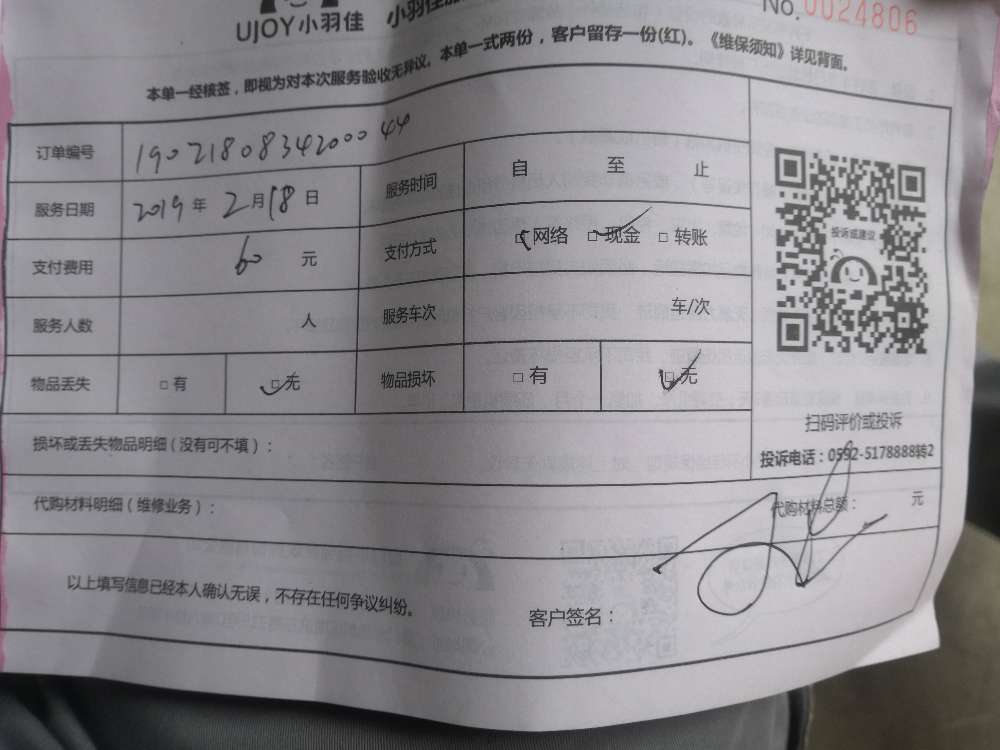 UJOY小羽佳 小羽佳服
No.0024806
本单一经核签，即视为对本次服务验收无异议。本单一式两份，客户留存一份(红)。《维保须知》详见背面。
订单编号 19021808342000044
服务日期 2019年2月18日 服务时间 自 至 止
支付费用 60 元 支付方式 □网络 □现金 □转账
服务人数 人 服务车次 车/次
物品丢失 □有 □无 物品损坏 □有 □无
投诉或建议
扫码评价或投诉
投诉电话：0592-5178888转2
损坏或丢失物品明细（没有可不填）：
代购材料明细（维修业务）： 代购材料总额： 元
以上填写信息已经本人确认无误，不存在任何争议纠纷。
客户签名：